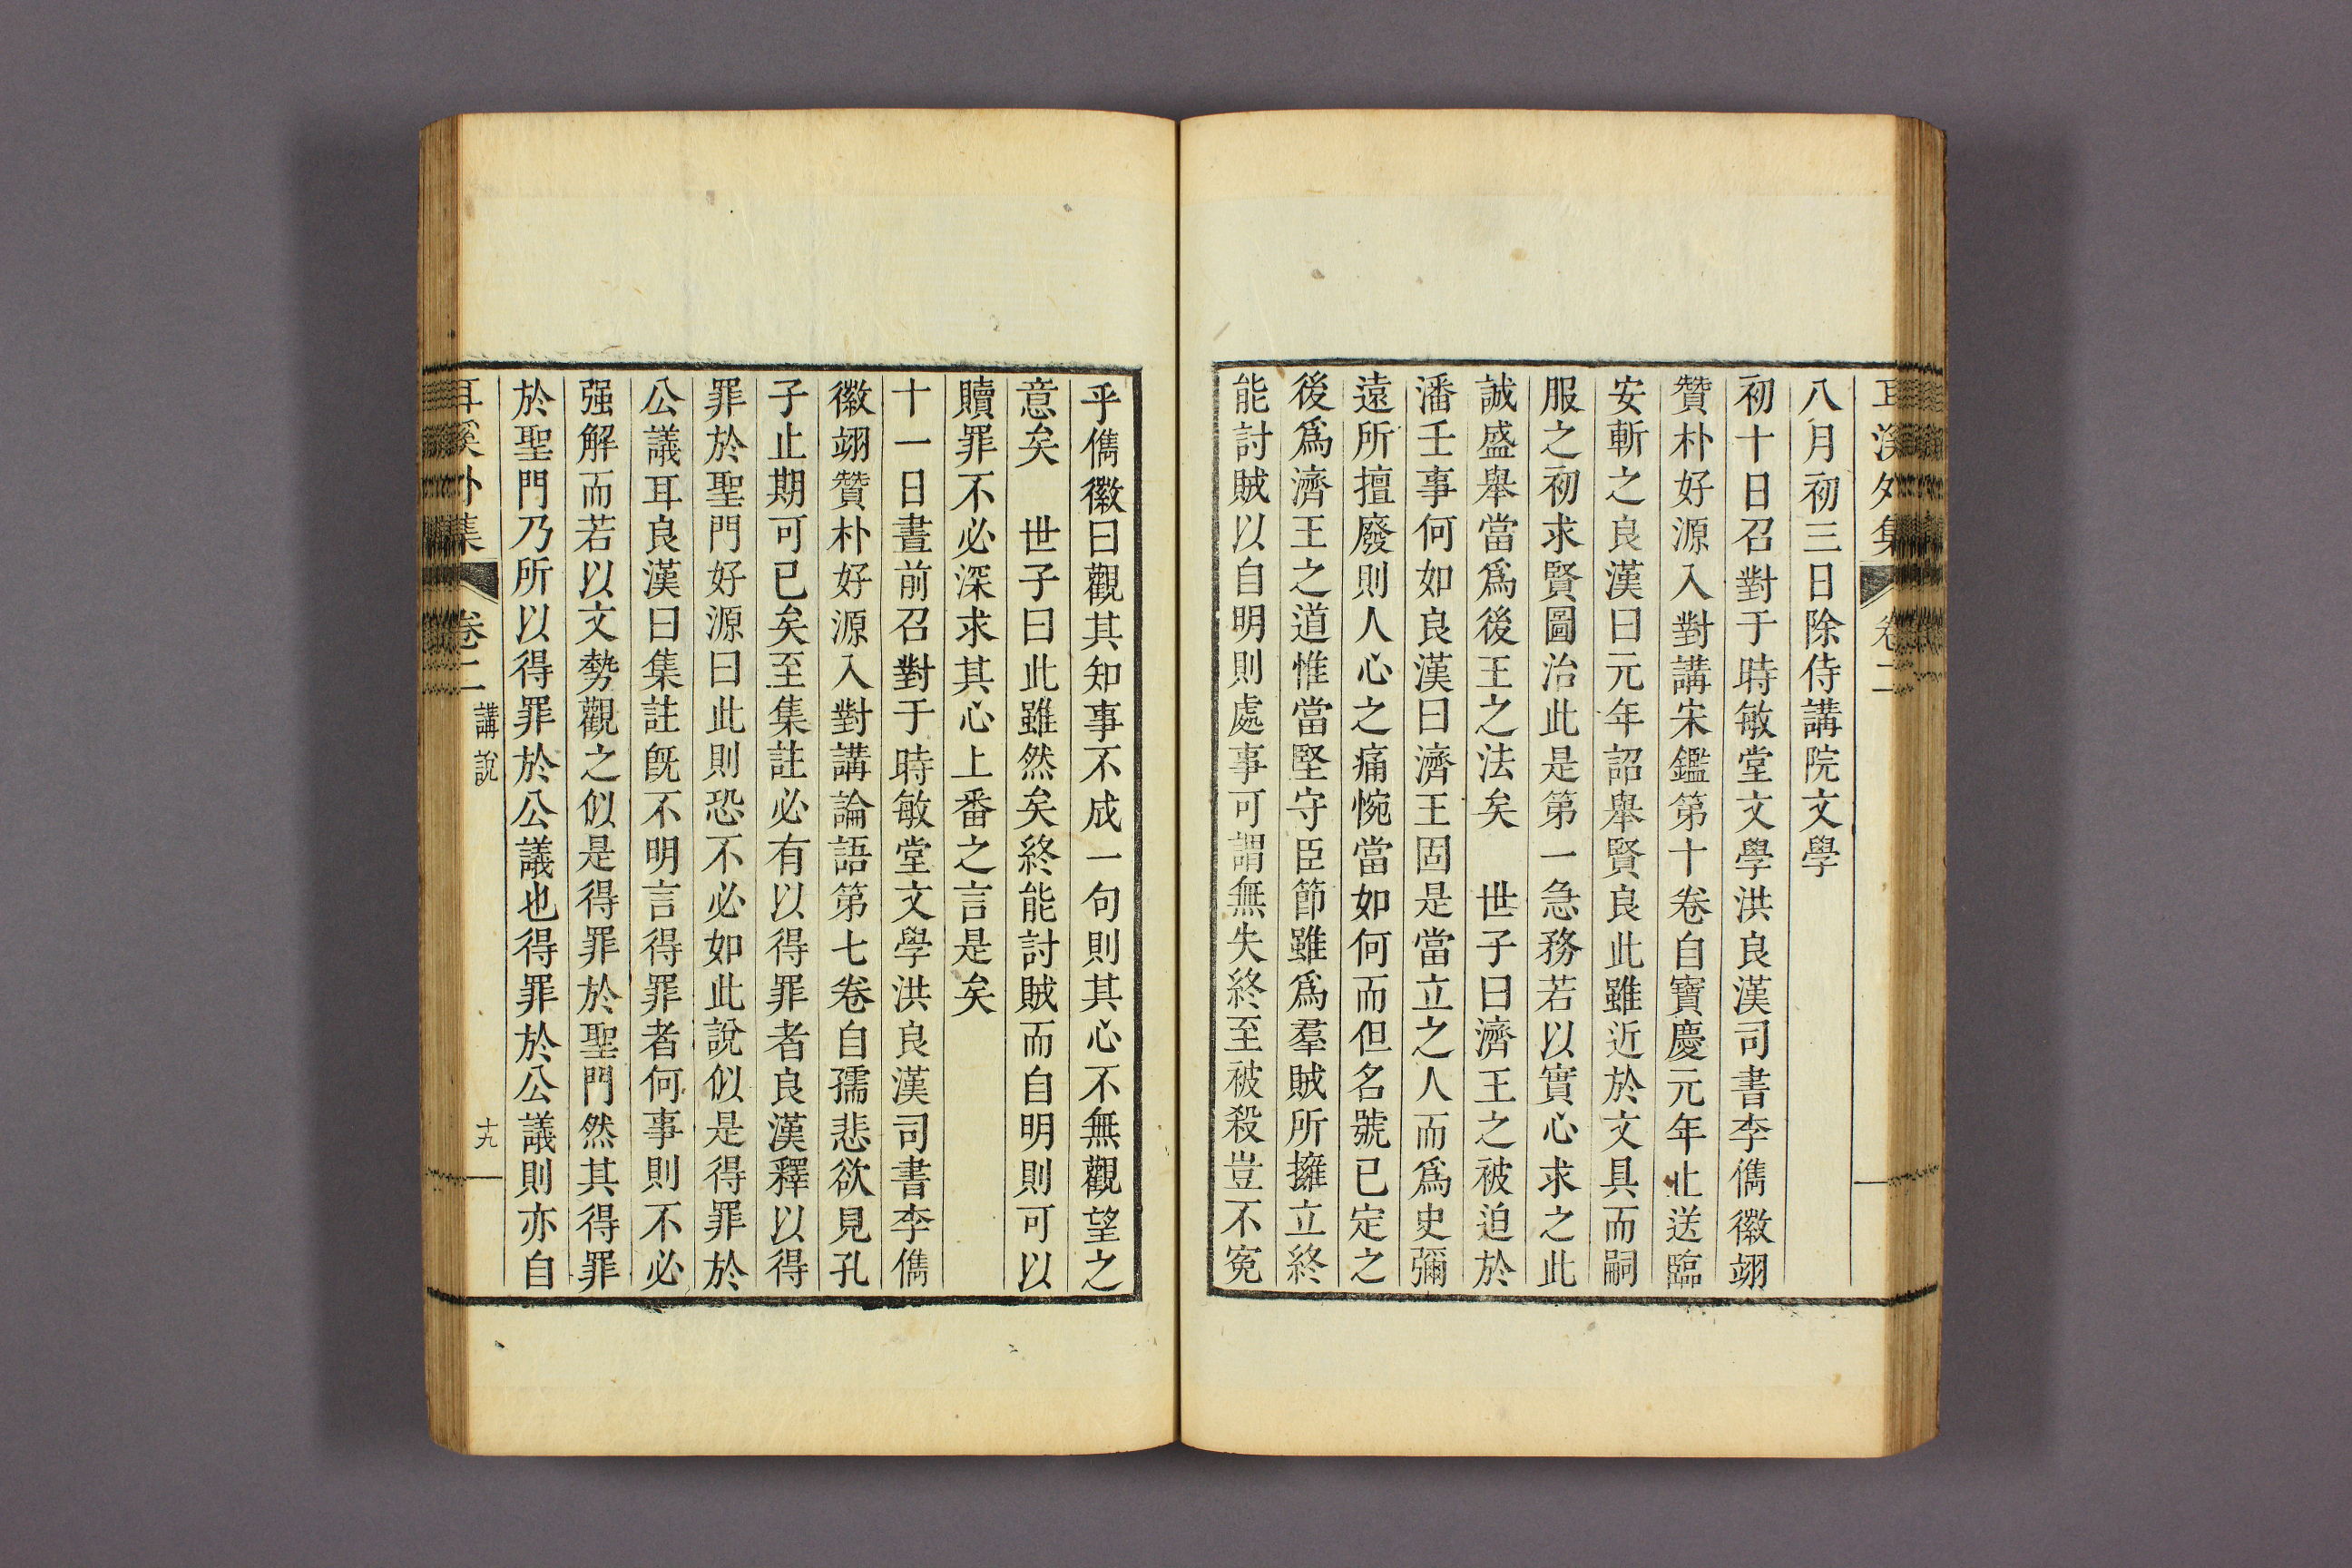 耳溪外集 卷二
八月初三日除侍講院文學
初十日召對于時敏堂文學洪良漢司書李儁徽翊
贊朴好源入對講宋鑑第十卷自寶慶元年止送臨
安斬之良漢曰元年詔舉賢良此雖近於文具而嗣
服之初求賢圖治此是第一急務若以實心求之此
誠盛舉當爲後王之法矣　世子曰濟王之被迫於
潘壬事何如良漢曰濟王固是當立之人而爲史彌
遠所擅廢則人心之痛惋當如何而但名號已定之
後爲濟王之道惟當堅守臣節雖爲羣賊所擁立終
能討賊以自明則處事可謂無失終至被殺豈不冤
乎儁徽曰觀其知事不成一句則其心不無觀望之
意矣　世子曰此雖然矣終能討賊而自明則可以
贖罪不必深求其心上番之言是矣
十一日晝前召對于時敏堂文學洪良漢司書李儁
徽翊贊朴好源入對講論語第七卷自孺悲欲見孔
子止期可已矣至集註必有以得罪者良漢釋以得
罪於聖門好源曰此則恐不必如此說似是得罪於
公議耳良漢曰集註旣不明言得罪者何事則不必
强解而若以文勢觀之似是得罪於聖門然其得罪
於聖門乃所以得罪於公議也得罪於公議則亦自
耳溪外集 卷二 講說 十九